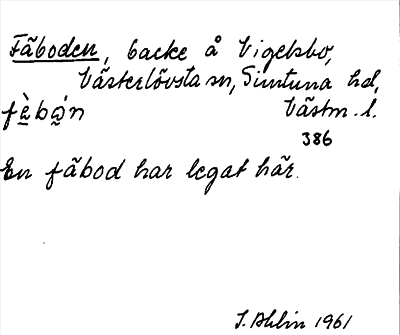 Fäboden, backe å Vigelsbo,
Västerlövsta sn, Simtuna hd,
fèbȯ̰n Västm. l.
386
En fäbod har legat här.
J. Ahlin 1961